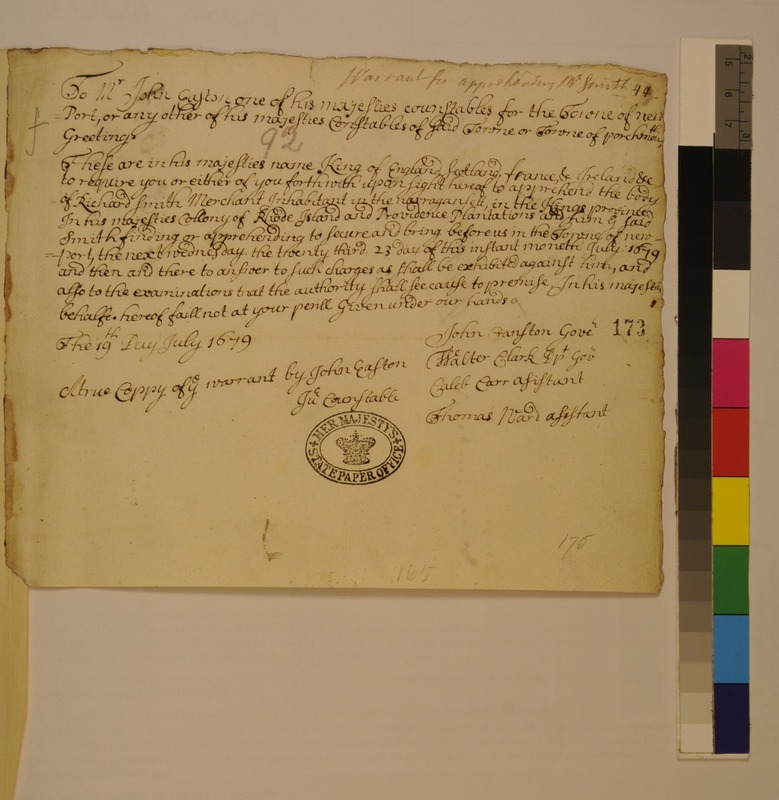 Warrant for apprehending Mr Smith 44
To Mr John Easton one of his majesties counstables for the Towne of new
Port, or any other of his majesties Constables of said Towne or Towne of porchmouth
Greeting:
92
These are in his majesties name King of England, Scotland, france, & Ireland &c
to require you or either of you forthwith upon sight hereof to apprehend the body
of Richard Smith Merchant Inhabitant in the narraganset, in the Kings province
In his majesties Collony of Rhode Island and Providence Plantations and him ye said
Smith finding or apprehending to secure and bring before us in the Towne of new=
=port, the next wednesday, the twenty third. 23 day of this instant moneth July: 1679
and then and there to answer to such charges as shall be exhibited against him, and
also to the examinations that the authority shall see cause to premise, In his majesties
behalfe. hereof fall not at your perill Given under our hands
The 19th Day July 1679
John Cranston Govr 173
Walter Clark Dpt Gov
Caleb Carr asistant
Thomas Ward asistant
A true Coppy of ye warrant by John Easton
Jur Counstable
HER MAJESTY'S
STATE PAPER OFFICE
175
165